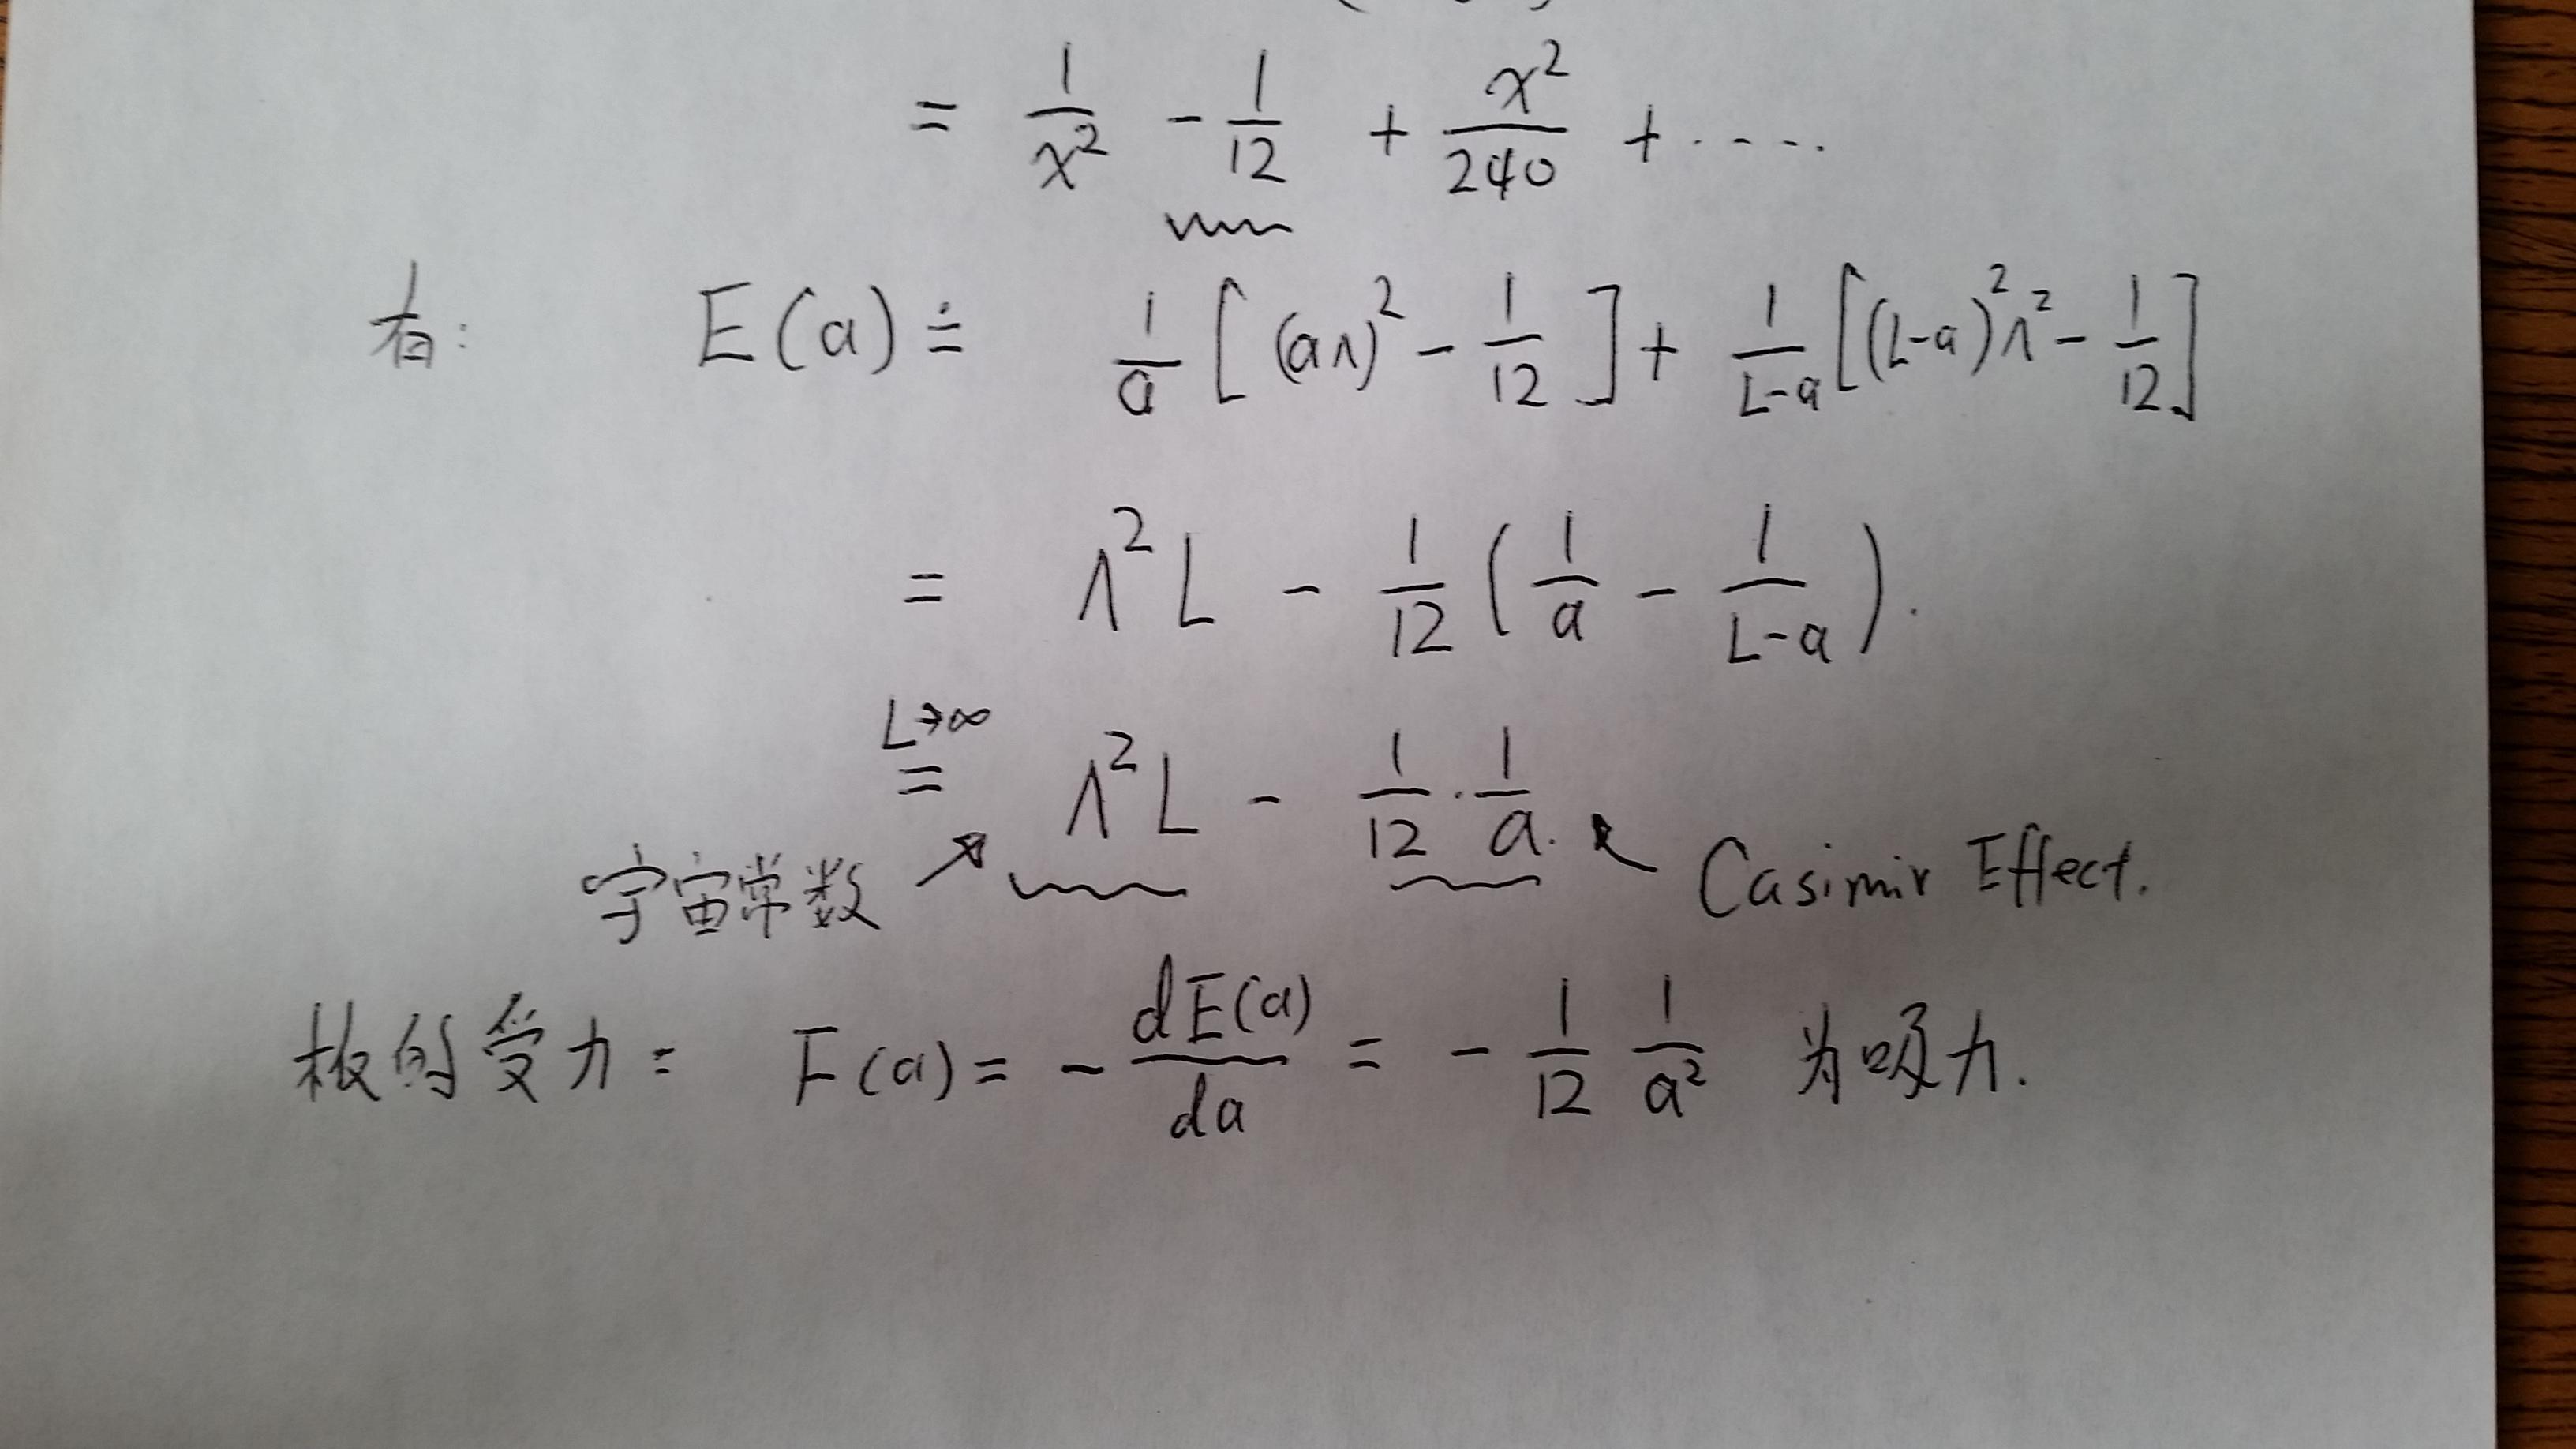 = 1/x² - 1/12 + x²/240 + ·····
有: E(a) ≐ 1/a [(aΛ)² - 1/12] + 1/(L-a) [(L-a)²Λ² - 1/12]
= Λ²L - 1/12 (1/a - 1/(L-a)).
L→∞
= Λ²L - 1/12 · 1/a.
宇宙常数 ↗ ↖ Casimir Effect.
板的受力: F(a) = - dE(a)/da = - 1/12 1/a² 为吸力.